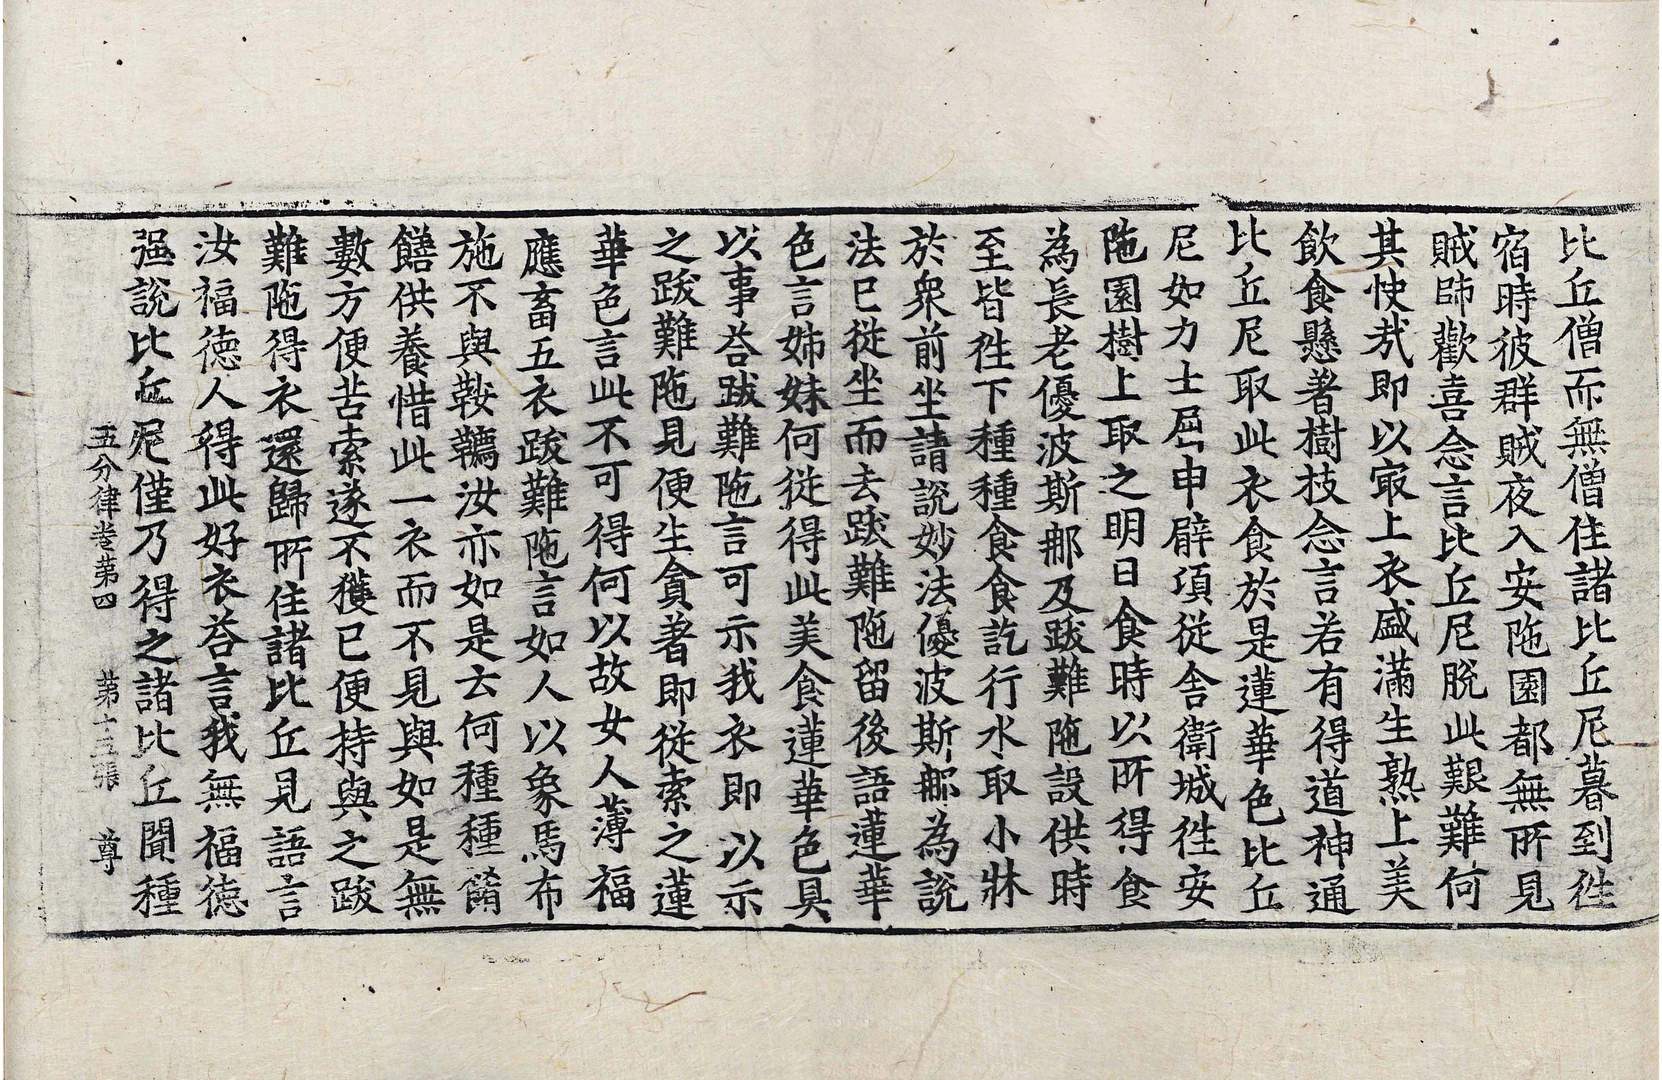 比丘僧而無僧住諸比丘尼暮到徃
宿時彼群賊夜入安陁園都無所見
賊師歡喜念言比丘尼脫此艱難何
其快㢤即以冣上衣盛滿生熟上美
飲食懸著樹枝念言若有得道神通
比丘尼取此衣食於是蓮華色比丘
尼如力士屈申臂頃從舍衛城徃安
陁園樹上取之明日食時以所得食
為長老優波斯那及跋難陁設供時
至皆徃下種種食食訖行水取小牀
於衆前坐請說妙法優波斯那為說
法已從坐而去跋難陁留後語蓮華
色言姊妹何從得此美食蓮華色具
以事荅跋難陁言可示我衣即以示
之跋難陁見便生貪著即從索之蓮
華色言此不可得何以故女人薄福
應畜五衣跋難陁言如人以象馬布
施不與鞍韉汝亦如是云何種種餚
饍供養惜此一衣而不見與如是無
數方便苦索遂不獲已便持與之跋
難陁得衣還歸所住諸比丘見語言
汝福德人得此好衣荅言我無福德
强說比丘尼僅乃得之諸比丘聞種
五分律卷第四 第十五張 尊